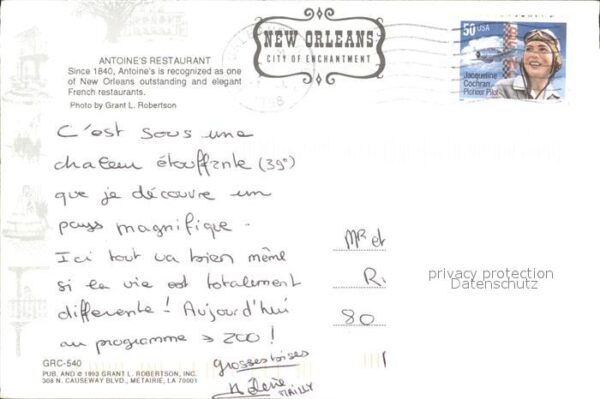 ANTOINE'S RESTAURANT
Since 1840, Antoine's is recognized as one
of New Orleans outstanding and elegant
French restaurants.
Photo by Grant L. Robertson
NEW ORLEANS
CITY OF ENCHANTMENT
50 USA
Jacqueline
Cochran
Pioneer Pilot
C'est sous une
chaleur étouffante (39°)
que je découvre un
pays magnifique.
Ici tout va bien même
si la vie est totalement
differente! Aujourd'hui
au programme → ZOO!
grosses bises
Hélène
MAILLY
MR et
R
80
privacy protection
Datenschutz
GRC-540
PUB. AND © 1993 GRANT L. ROBERTSON, INC.
308 N. CAUSEWAY BLVD., METAIRIE, LA 70001